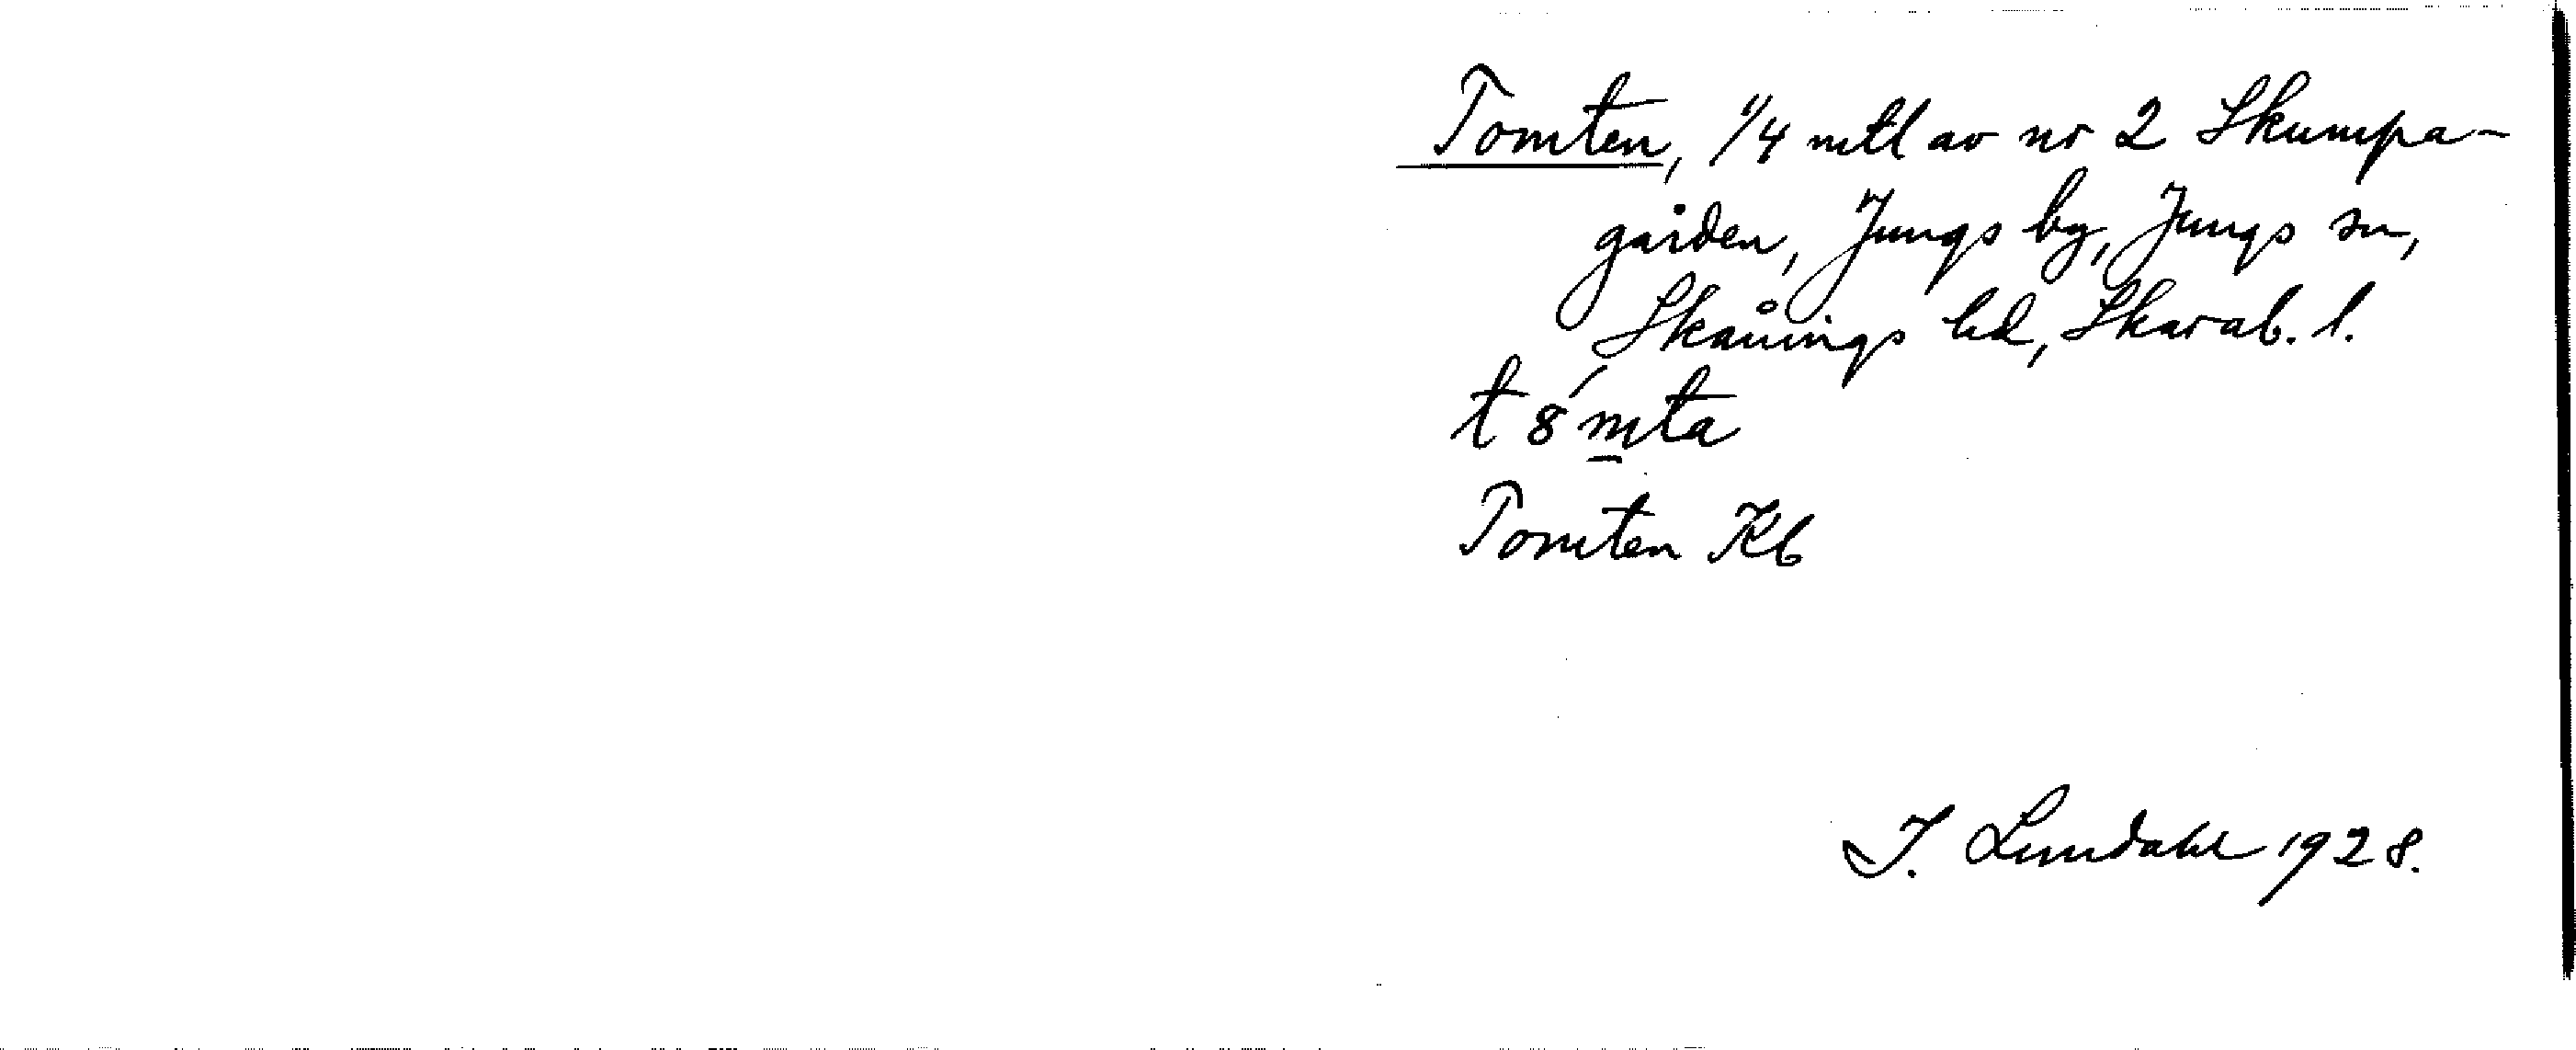 Tomten, 1/4 mtl av nr 2 Skumpa-
gården, Jungs by, Jungs sn,
Skånings hd, Skarab. l.
t 8´mta
Tomten Kb
I. Lundahl 1928.